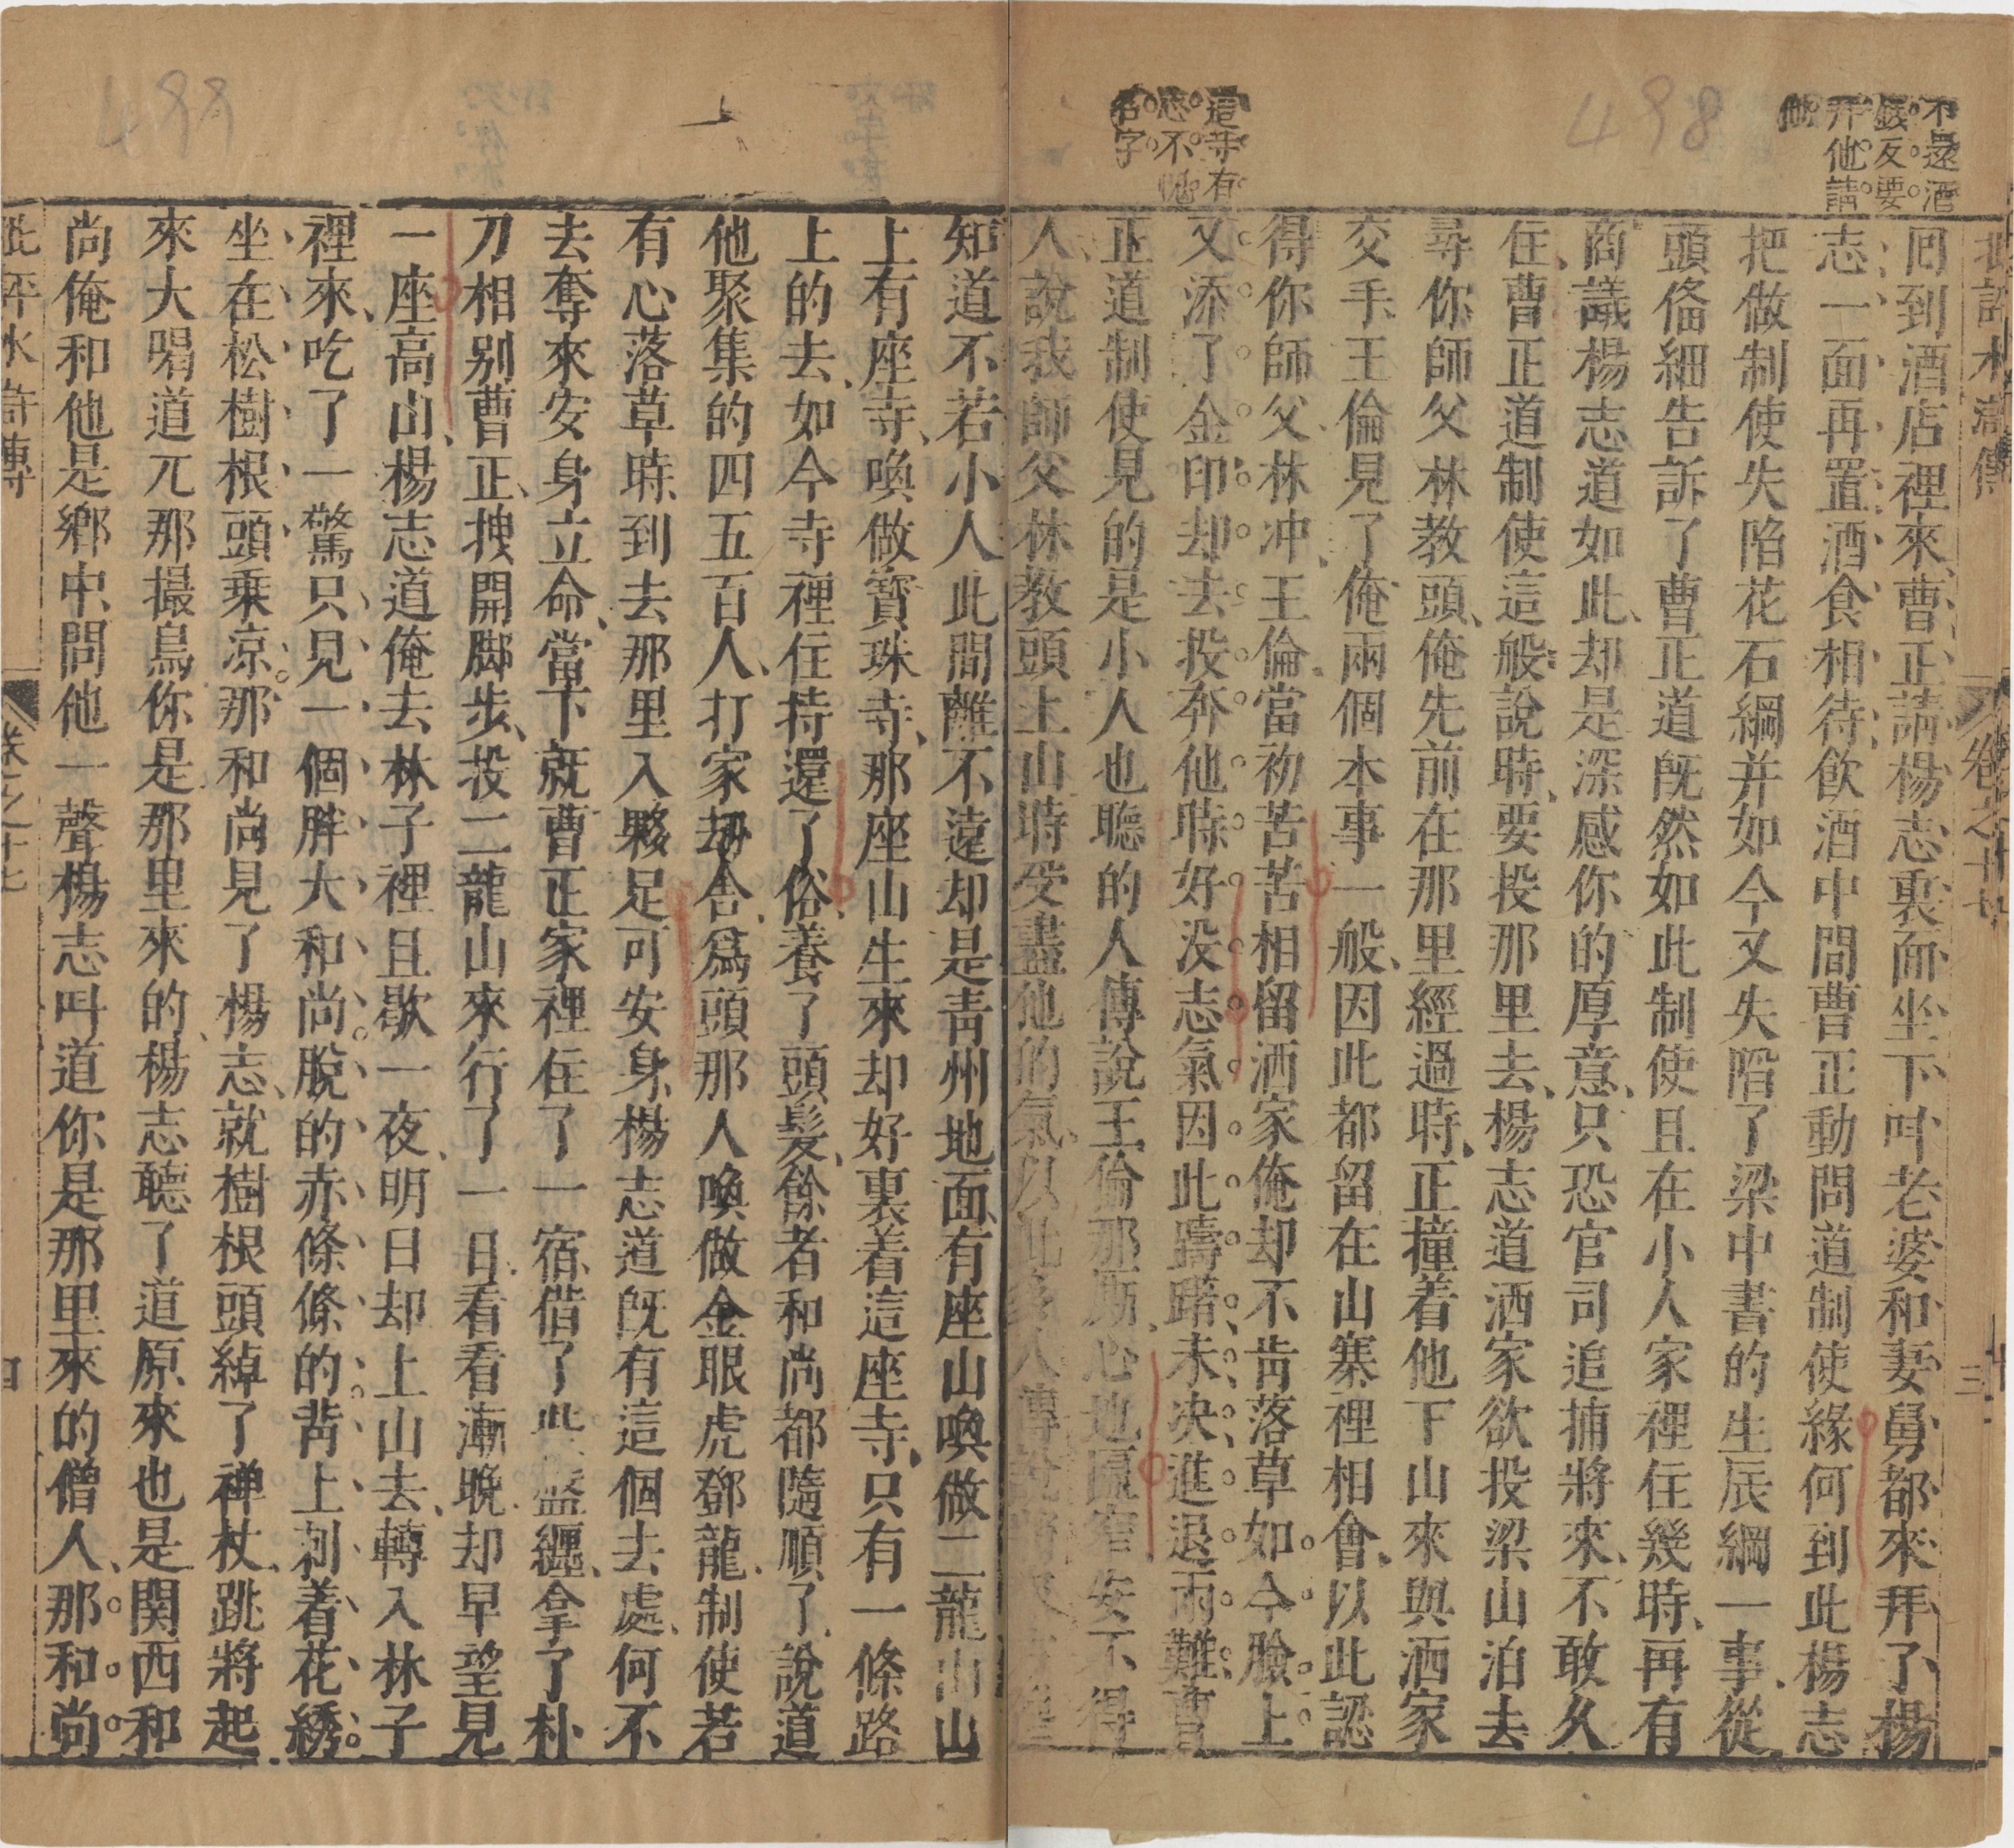 498
不還酒
錢反要
并他請
他
這等有
志不愧
名字
卷之十七
三
囘到酒店裡來曹正請楊志裏面坐下呌老婆和妻舅都來拜了楊
志一面再置酒食相待飲酒中間曹正動問道制使緣何到此楊志
把做制使失陷花石綱并如今又失陷了梁中書的生辰綱一事從
頭俻細告訴了曹正道既然如此制使且在小人家裡住幾時再有
商議楊志道如此却是深感你的厚意只恐官司追捕將來不敢久
住曹正道制使這般說時要投那里去楊志道洒家欲投梁山泊去
尋你師父林教頭俺先前在那里經過時正撞着他下山來與洒家
交手王倫見了俺兩個本事一般因此都留在山寨裡相會以此認
得你師父林冲王倫當初苦苦相留洒家俺却不肯落草如今臉上
又添了金印却去投奔他時好没志氣因此躊躇未决進退兩難曹
正道制使見的是小人也聽的人傳說王倫那厮心地匾窄安不得
人說我師父林教頭上山時受盡他的氣以此多人傳說
499
知道不若小人此間離不遠却是青州地面有座山喚做二龍山山
上有座寺喚做寶珠寺那座山生來却好裏着這座寺只有一條路
上的去如今寺裡住持還了俗養了頭髮餘者和尚都隨順了說道
他聚集的四五百人打家刼舎爲頭那人喚做金眼虎鄧龍制使若
有心落草時到去那里入夥足可安身楊志道既有這個去處何不
去奪來安身立命當下就曹正家裡住了一宿借了些盤纒拿了朴
刀相别曹正拽開脚步投二龍山來行了一日看看漸晚却早望見
一座高山楊志道俺去林子裡且歇一夜明日却上山去轉入林子
裡來吃了一驚只見一個胖大和尚脫的赤條條的背上刺着花綉
坐在松樹根頭乗凉那和尚見了楊志就樹根頭綽了禅杖跳將起
來大喝道兀那撮鳥你是那里來的楊志聽了道原來也是関西和
尚俺和他是鄉中問他一聲楊志呌道你是那里來的僧人那和尚
批評水滸傳
卷之十七
四